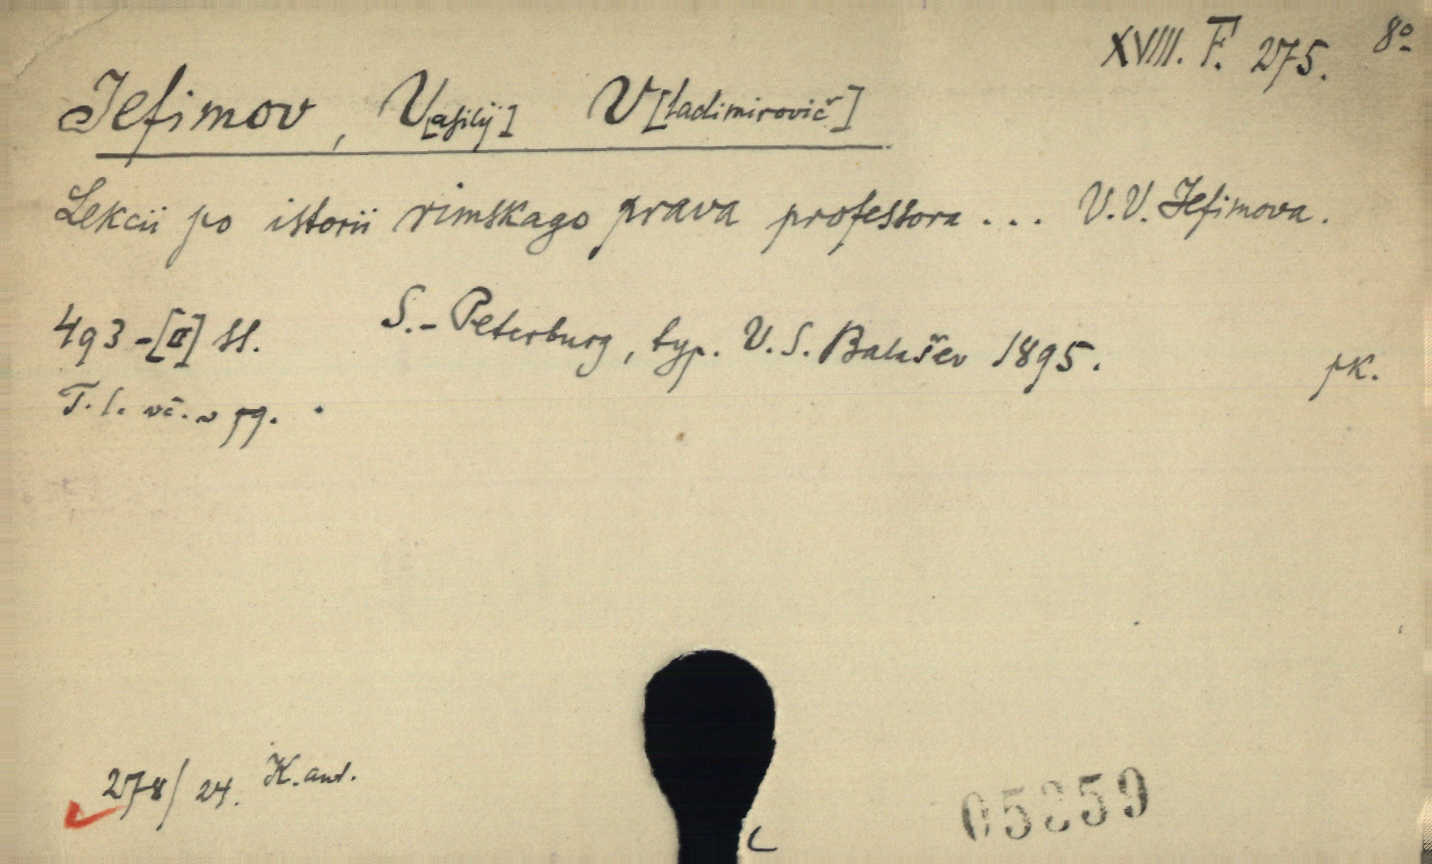 XVIII. F. 275. 8º
Jefimov, V[asilij] V[ladimirovič]
Lekcii po istorii rimskago prava professora ... V. V. Jefimova.
493-[II] ss. S.-Peterburg, typ. V. S. Balašev 1895.
pk.
T. l. vč. v pg.
278/24. K. aut.
05359